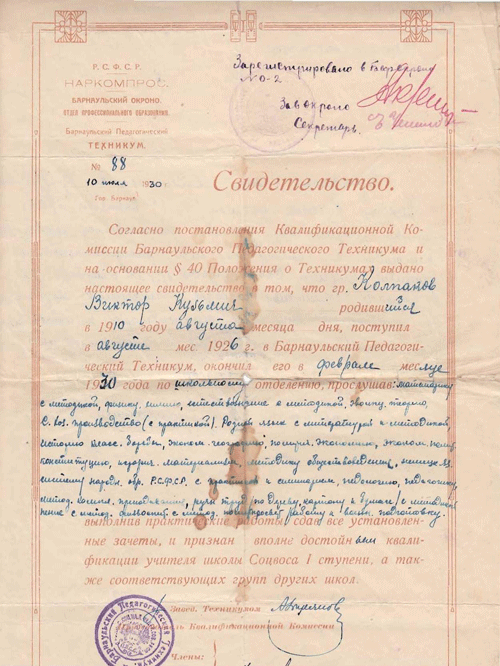 Р. С. Ф. С. Р.
НАРКОМПРОС.
БАРНАУЛЬСКИЙ ОКРОНО.
ОТДЕЛ ПРОФЕССИОНАЛЬНОГО ОБРАЗОВАНИЯ.
Барнаульский Педагогический
ТЕХНИКУМ.
№ 88
10 июля 1930 г.
Гор. Барнаул.
Зарегистрировано в
№ 0-2
Зав окроно
Секретарь
Свидетельство.
Согласно постановления Квалификационной Ко-
миссии Барнаульского Педагогического Техникума и
на основании § 40 Положения о Техникумах выдано
настоящее свидетельство в том, что гр. Колпаков
Виктор Кузьмич родившийся
в 1910 году августа месяца дня, поступил
в августе мес. 1926 г. в Барнаульский Педагоги-
ческий Техникум, окончил его в феврале месяце
1930 года по школьному отделению, прослушав: математику
с методикой, физику, химию, естествознание с методикой,
производство (с практикой). Родной язык с литературой и методикой,
историю класс. борьбы, эконом. географию, полит. экономию,
конституцию, истории. материализм, методику обществоведения,
Р.С.Ф.С.Р. с педологию, педагогику
ручн. труд по дереву, картону и бумаге/с методикой
пение с метод. физкульт с метод. работу и военн. подготовку.
выполнив практические работы сдав все установлен-
ные зачеты, и признан вполне достойным квали-
фикации учителя школы Соцвоса I ступени, а так-
же соответствующих групп других школ.
Завед. Техникумом
Председатель Квалификационной Комиссии
Члены:
Барнаульский Педагогический техникум